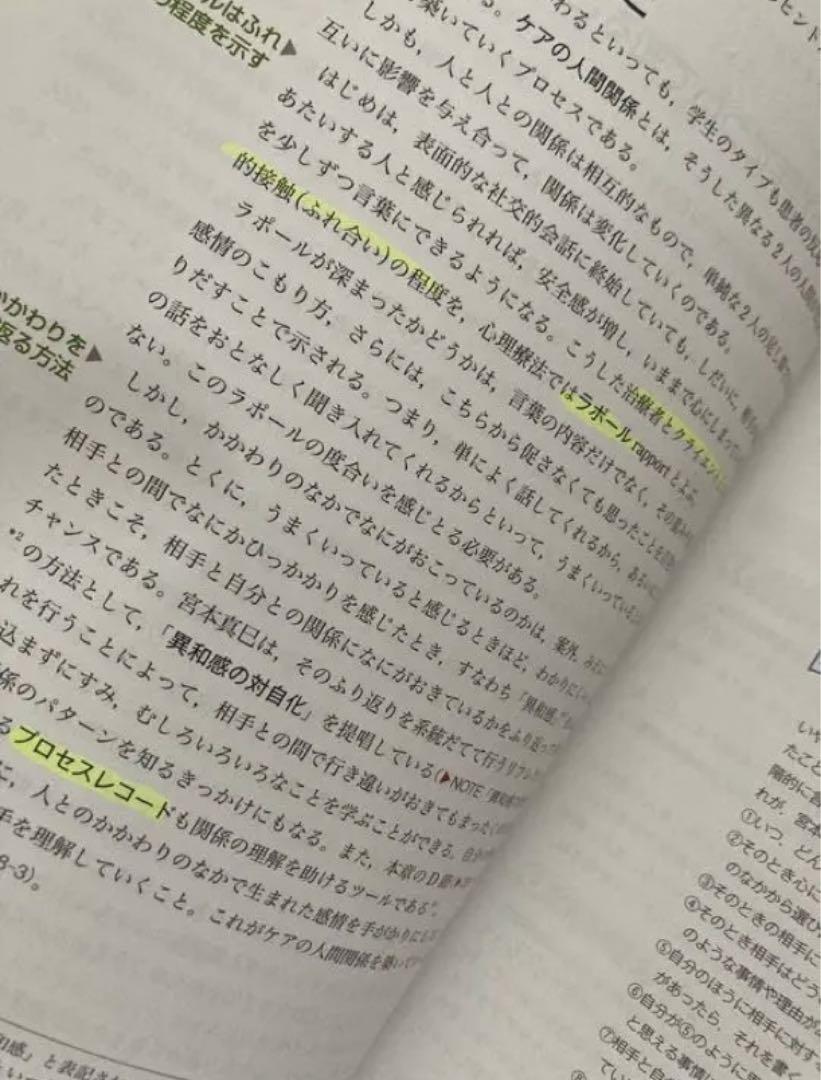 ルはふれ▶
程度を示す
わるといっても，学生のタイプも患者の
る。ケアの人間関係とは，そうした異なる2人の人間
築いていくプロセスである。
しかも，人と人との関係は相互的なもので，単純な2人の
互いに影響を与え合って，関係は変化していくのである。
はじめは，表面的な社交的会話に終始していても，しだいに，
あたいする人と感じられれば，安全感が増し，いままで心にしまって
を少しずつ言葉にできるようになる。こうした治療者とクライエント
的接触(ふれ合い)の程度を，心理療法ではラポール rapport とよぶ。
ラポールが深まったかどうかは，言葉の内容だけでなく，その
感情のこもり方，さらには，こちらから促さなくても思ったことを
りだすことで示される。つまり，単によく話してくれるから，あるいは
の話をおとなしく聞き入れてくれるからといって，うまくいっている
ない。このラポールの度合いを感じとる必要がある。
かかわりを▶
返る方法
しかし，かかわりのなかでなにがおこっているのかは，案外，
のである。とくに，うまくいっていると感じるときほど，わかりにくい
相手との間でなにかひっかかりを感じたとき，すなわち「異和感
たときこそ，相手と自分との関係になにがおきているかをふり返って
チャンスである。宮本真巳は，そのふり返りを系統だてて行うリフレ
*2
の方法として，「異和感の対自化」を提唱している(▶NOTE「異和感
れを行うことによって，相手との間で行き違いがおきてもまったく
込まずにすみ，むしろいろいろなことを学ぶことができる。自分
係のパターンを知るきっかけにもなる。また，本章のD節
るプロセスレコードも関係の理解を助けるツールである
に，人とのかかわりのなかで生まれた感情を手がかりに
手を理解していくこと。これがケアの人間関係を築いて
8-3)。
和感」と表記
ヒント
いや
たこと
階的に
れが，宮本
①いつ，どん
②そのとき心に
のなかから選び
③そのときの相手に
④そのとき相手はどう
のような事情や理由が
⑤自分のほうに相手に対す
があったら，それを書く
⑥自分が⑤のように
と思える事情
⑦相手と自
てい
⑧